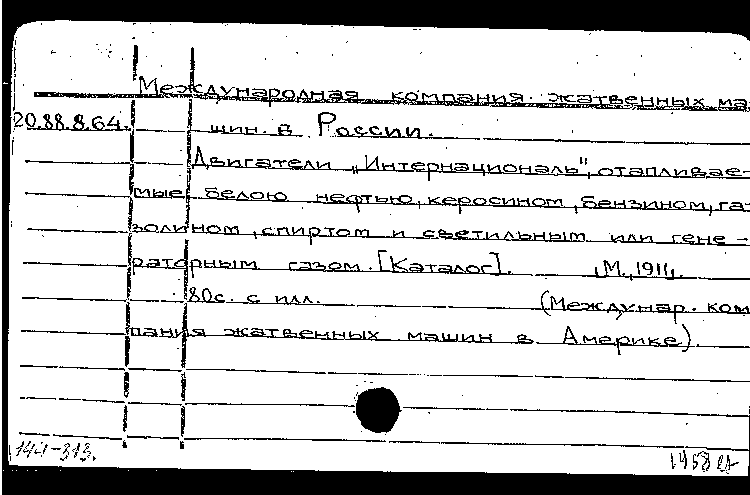 Международная компания жатвенных ма-
20.88.8.64. шин в России.
Двигатели „Интернациональ", отапливае-
мые белою нефтью, керосином, бензином, га-
золином, спиртом и светильным или гене-
раторным газом. [Каталог]. М., 1911.
80с. с илл. (Междунар. ком
пания жатвенных машин в Америке).